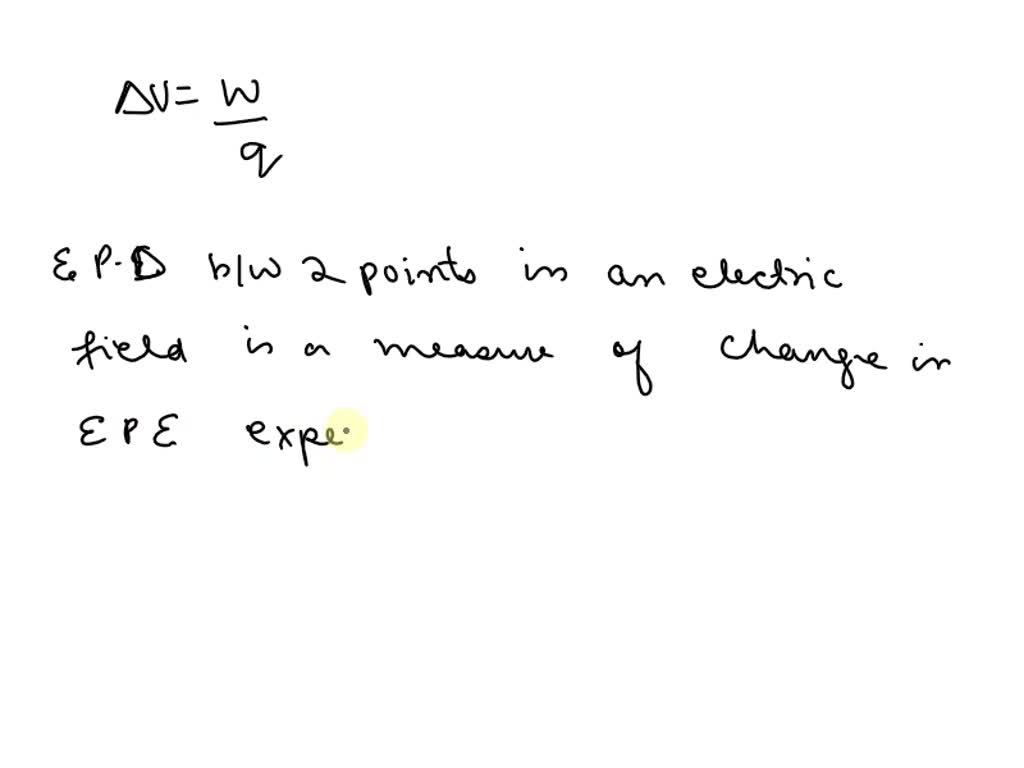 ΔV = W
q
E P.D b/w 2 points in an electric
field is a measure of change in
E P E expe